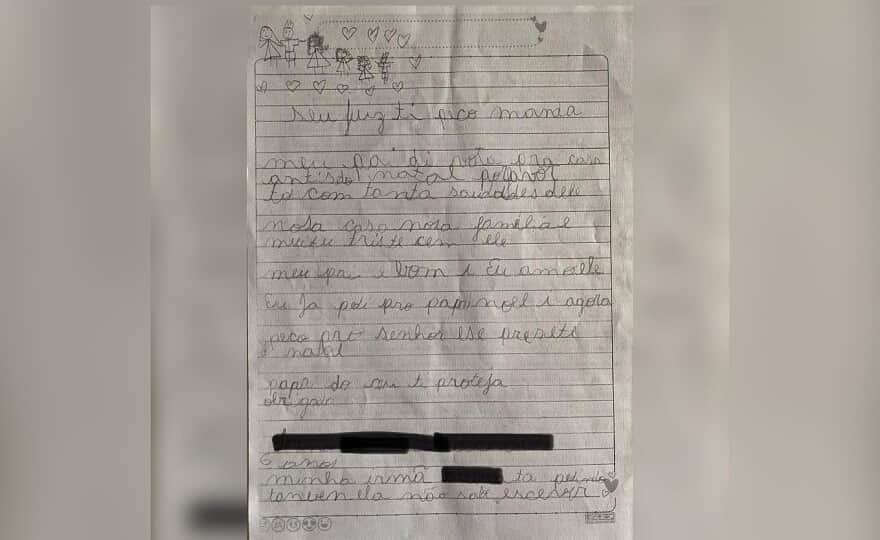 seu juiz ti peco manda
meu pai di vota pra casa
antisdo natal porfavor
to com tanta saudades dele
nosa casa nosa familia e
muitu triste cem ele
meu pai i bom i Eu amo ele
Eu Ja pidi pro papai noel i agora
peco pro senhor ese preseti
di natal
papa do ceu ti proteja
obrigado
6 anos
minha irmã ta pedindo
tanben ela não sabe escever